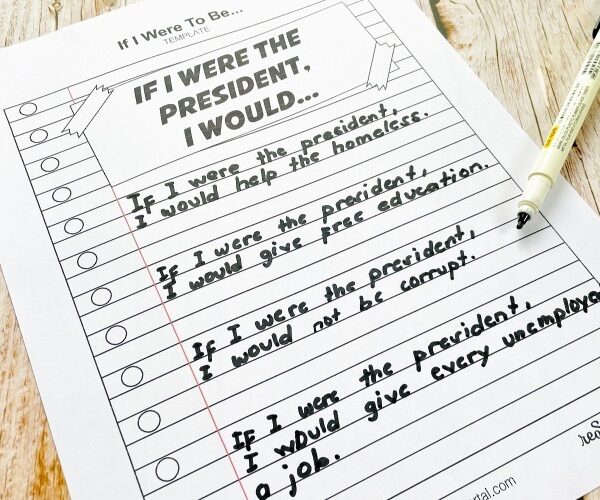 If I Were To Be...
TEMPLATE
IF I WERE THE
PRESIDENT,
I WOULD...
If I were the president,
I would help the homeless.
If I were the president,
I would give free education.
If I were the president,
I would not be corrupt.
If I were the president,
I would give every
a job.